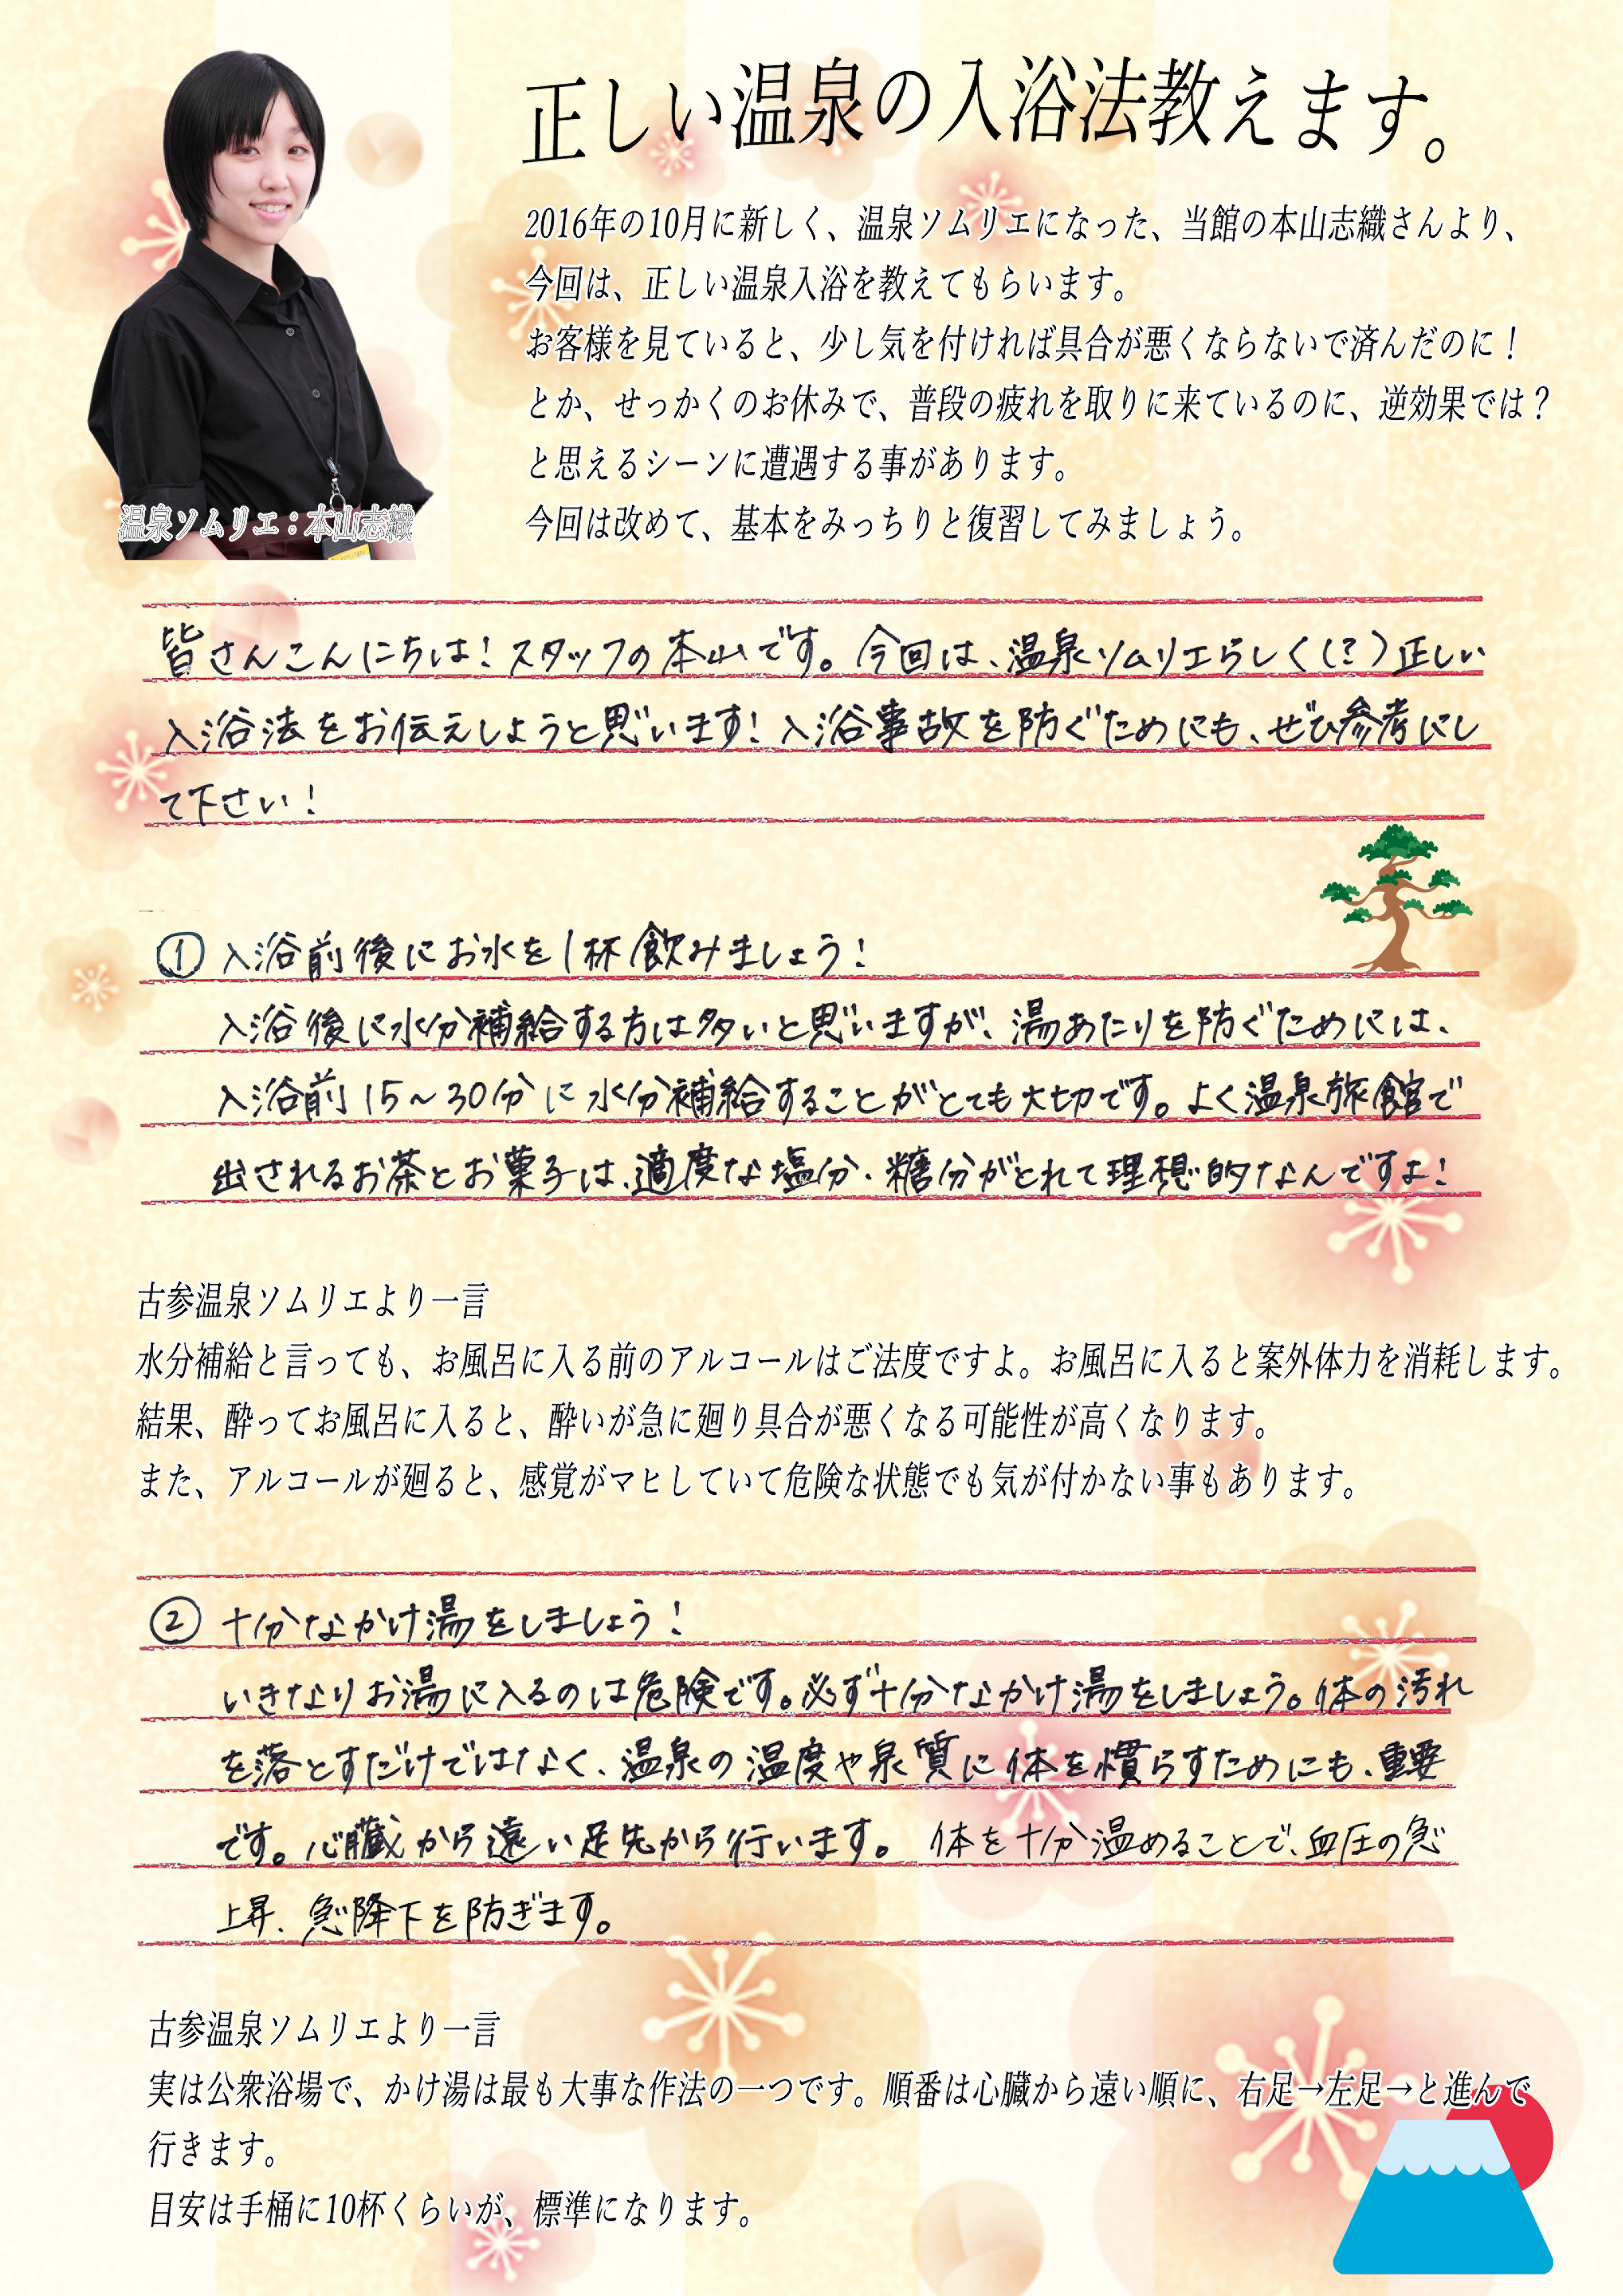 正しい温泉の入浴法教えます。
2016年の10月に新しく、温泉ソムリエになった、当館の本山志織さんより、
今回は、正しい温泉入浴を教えてもらいます。
お客様を見ていると、少し気を付ければ具合が悪くならないで済んだのに！
とか、せっかくのお休みで、普段の疲れを取りに来ているのに、逆効果では？
と思えるシーンに遭遇する事があります。
今回は改めて、基本をみっちりと復習してみましょう。
温泉ソムリエ：本山志織
皆さんこんにちは！スタッフの本山です。今回は、温泉ソムリエらしく（？）正しい
入浴法をお伝えしようと思います！入浴事故を防ぐためにも、ぜひ参考にし
て下さい！
① 入浴前後にお水を1杯飲みましょう！
入浴後に水分補給する方は多いと思いますが、湯あたりを防ぐためには、
入浴前15～30分に水分補給することがとても大切です。よく温泉旅館で
出されるお茶とお菓子は、適度な塩分・糖分がとれて理想的なんですよ！
古参温泉ソムリエより一言
水分補給と言っても、お風呂に入る前のアルコールはご法度ですよ。お風呂に入ると案外体力を消耗します。
結果、酔ってお風呂に入ると、酔いが急に廻り具合が悪くなる可能性が高くなります。
また、アルコールが廻ると、感覚がマヒしていて危険な状態でも気が付かない事もあります。
② 十分なかけ湯をしましょう！
いきなりお湯に入るのは危険です。必ず十分なかけ湯をしましょう。体の汚れ
を落とすだけではなく、温泉の温度や泉質に体を慣らすためにも、重要
です。心臓から遠い足先から行います。体を十分温めることで、血圧の急
上昇、急降下を防ぎます。
古参温泉ソムリエより一言
実は公衆浴場で、かけ湯は最も大事な作法の一つです。順番は心臓から遠い順に、右足→左足→と進んで
行きます。
目安は手桶に10杯くらいが、標準になります。